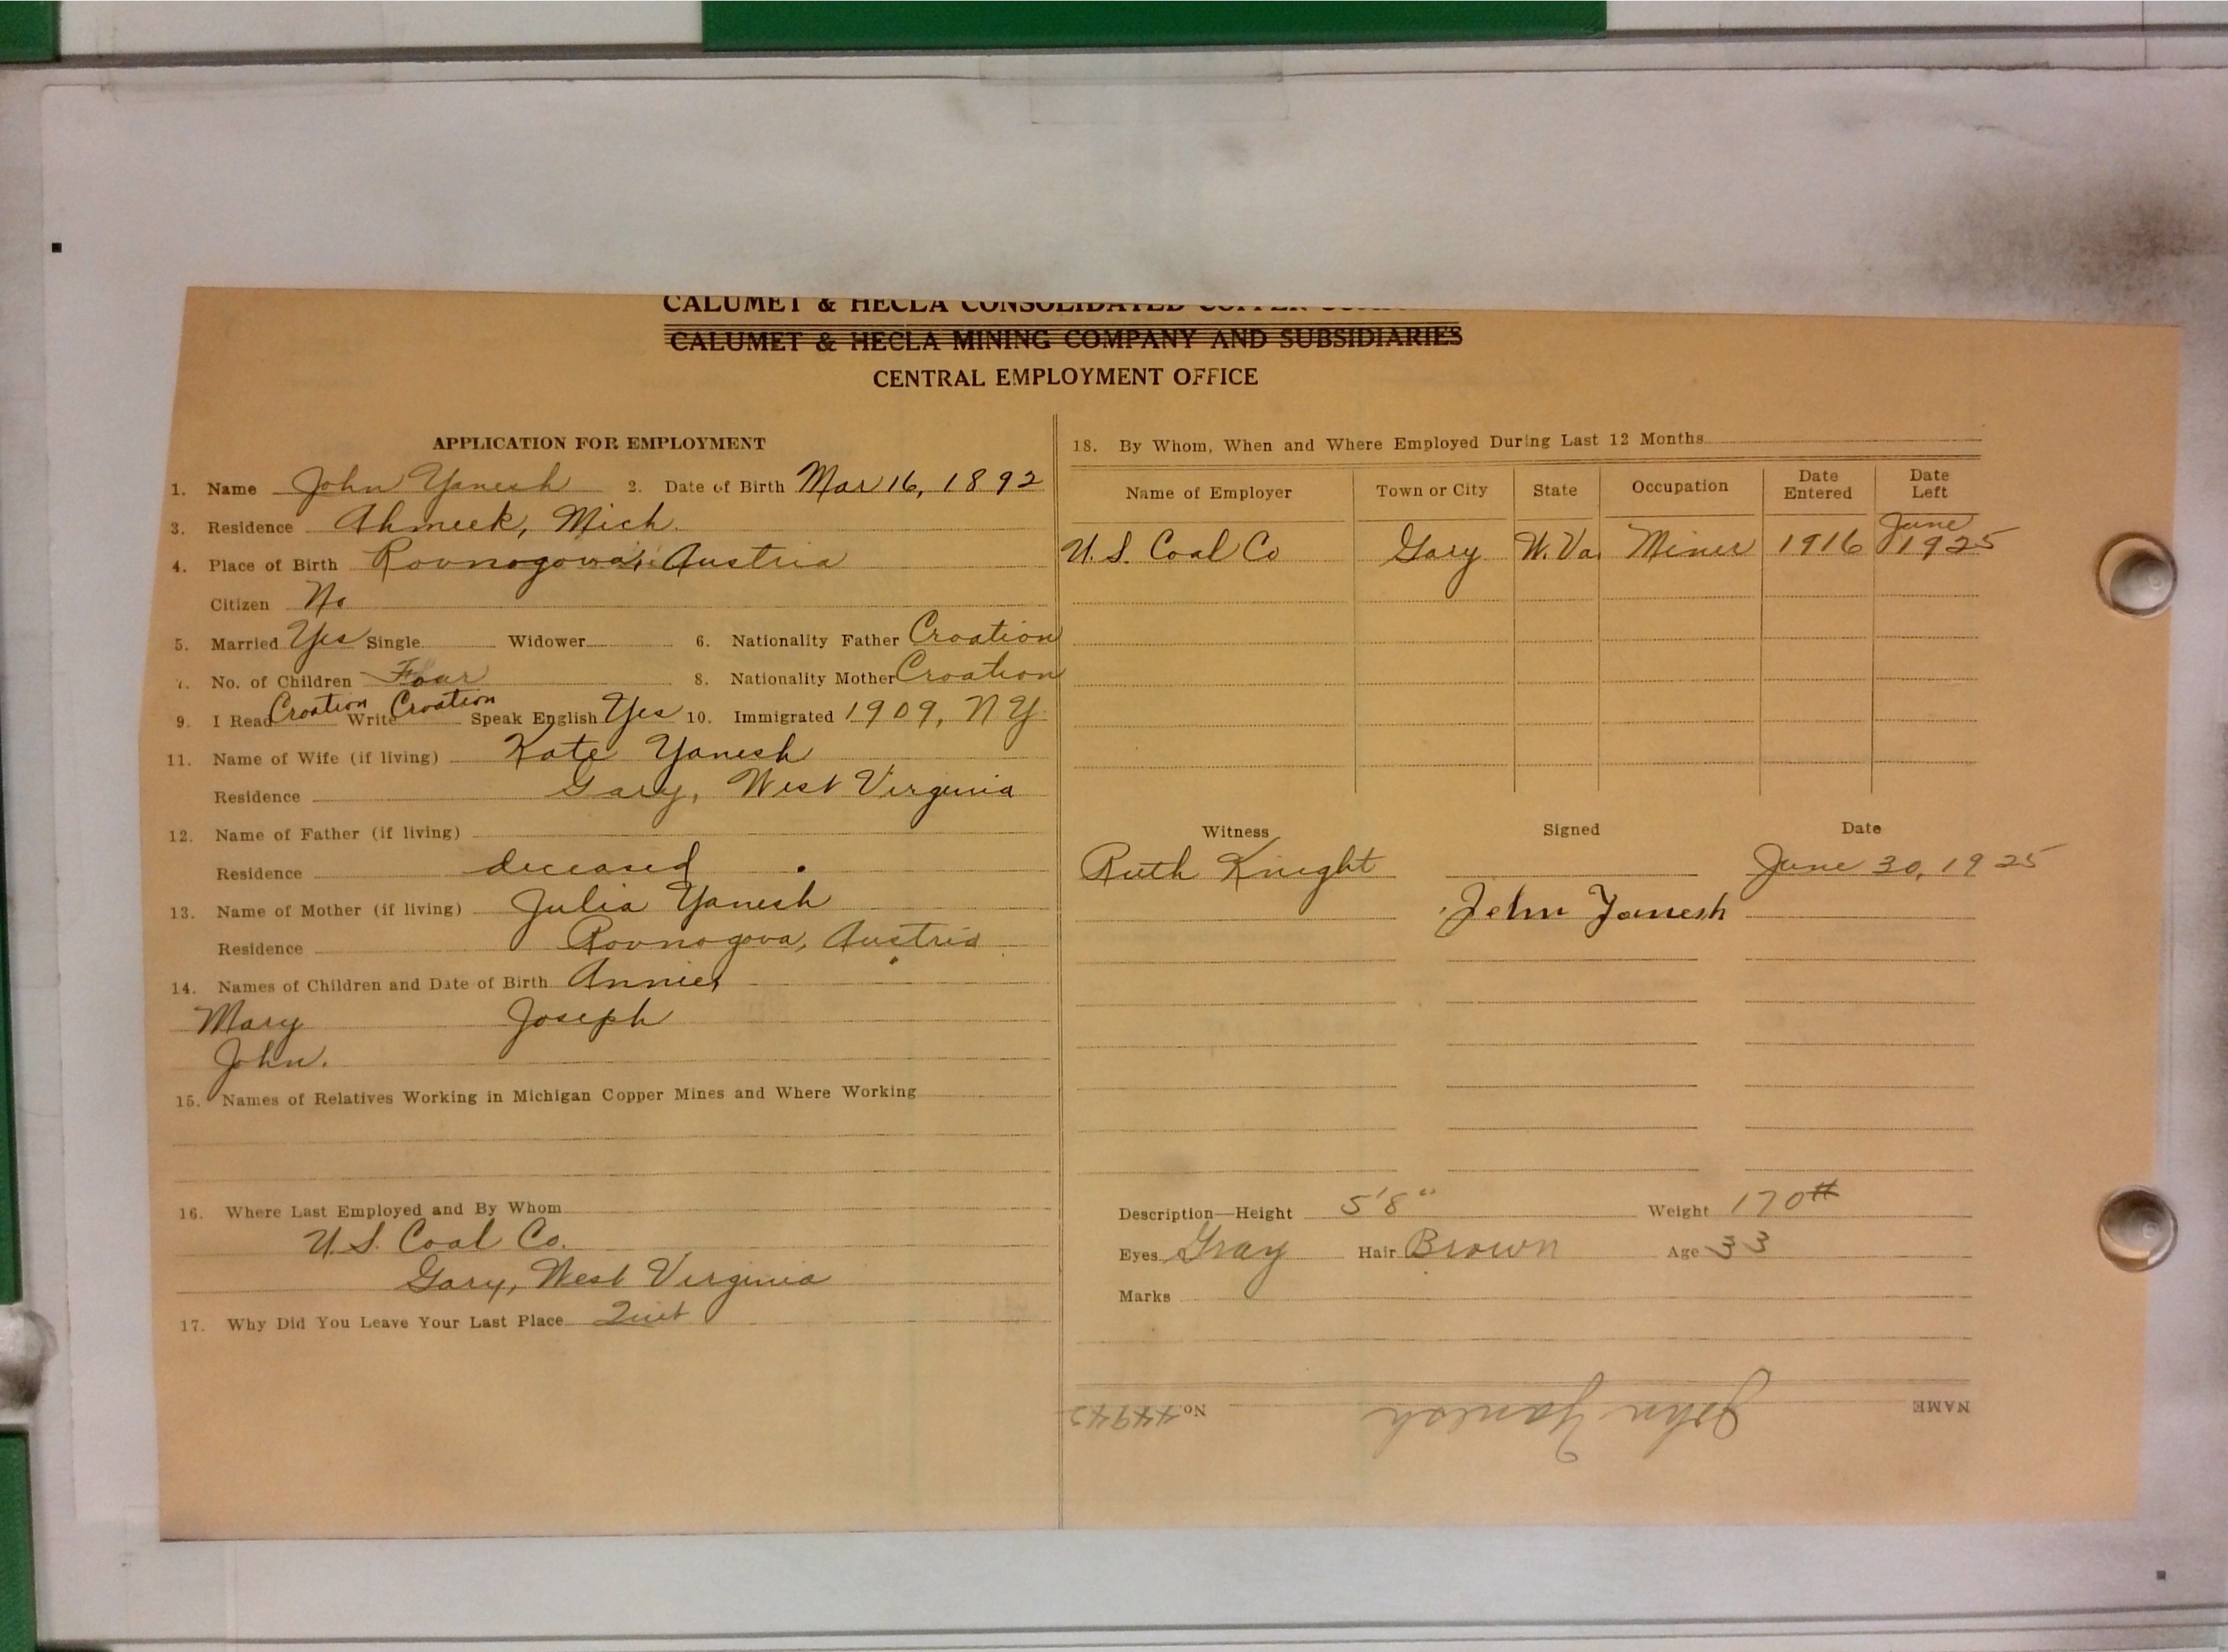 CALUMET & HECLA CONSOLIDATED COPPER
CALUMET & HECLA MINING COMPANY AND SUBSIDIARIES
CENTRAL EMPLOYMENT OFFICE
APPLICATION FOR EMPLOYMENT
1. Name John Yanesh 2. Date of Birth Mar 16, 1892
3. Residence Ahmeek, Mich.
4. Place of Birth Rovnogova, Austria
Citizen No
5. Married Yes Single Widower 6. Nationality Father Croation
7. No. of Children Four 8. Nationality Mother Croation
9. I Read Croation Write Croation Speak English Yes 10. Immigrated 1909, NY
11. Name of Wife (if living) Kate Yanesh
Residence Gary, West Virginia
12. Name of Father (if living)
Residence deceased
13. Name of Mother (if living) Julia Yanesh
Residence Rovnogova, Austria
14. Names of Children and Date of Birth Annie
Mary Joseph
John.
15. Names of Relatives Working in Michigan Copper Mines and Where Working
16. Where Last Employed and By Whom
U.S. Coal Co.
Gary, West Virginia
17. Why Did You Leave Your Last Place Quit
18. By Whom, When and Where Employed During Last 12 Months
Name of Employer Town or City State Occupation Date Entered Date Left
U.S. Coal Co Gary W.Va. Miner 1916 June 1925
Witness Signed Date
Ruth Knight June 30, 1925
John Yanesh
Description—Height 5'8" Weight 170#
Eyes Gray Hair Brown Age 33
Marks
NAME John Yanesh No. 44942